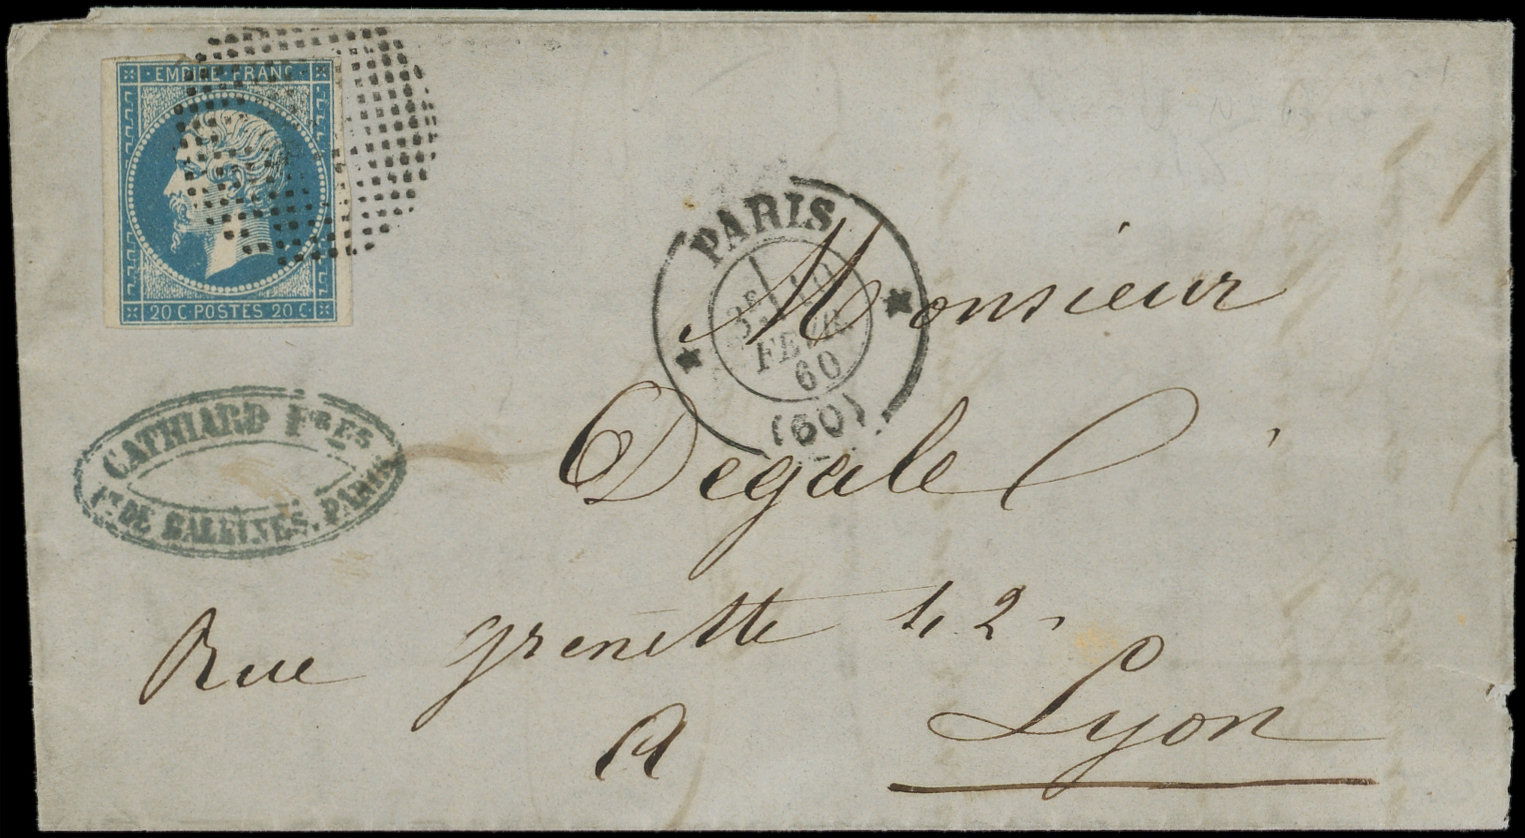 EMPIRE FRANC
20 C POSTES 20 C
PARIS
3E
FEVR
60
(60)
CATHIARD FRES
FT DE BALEINES. PARIS
Monsieur
Degale
Rue grenette 42
A
Lyon